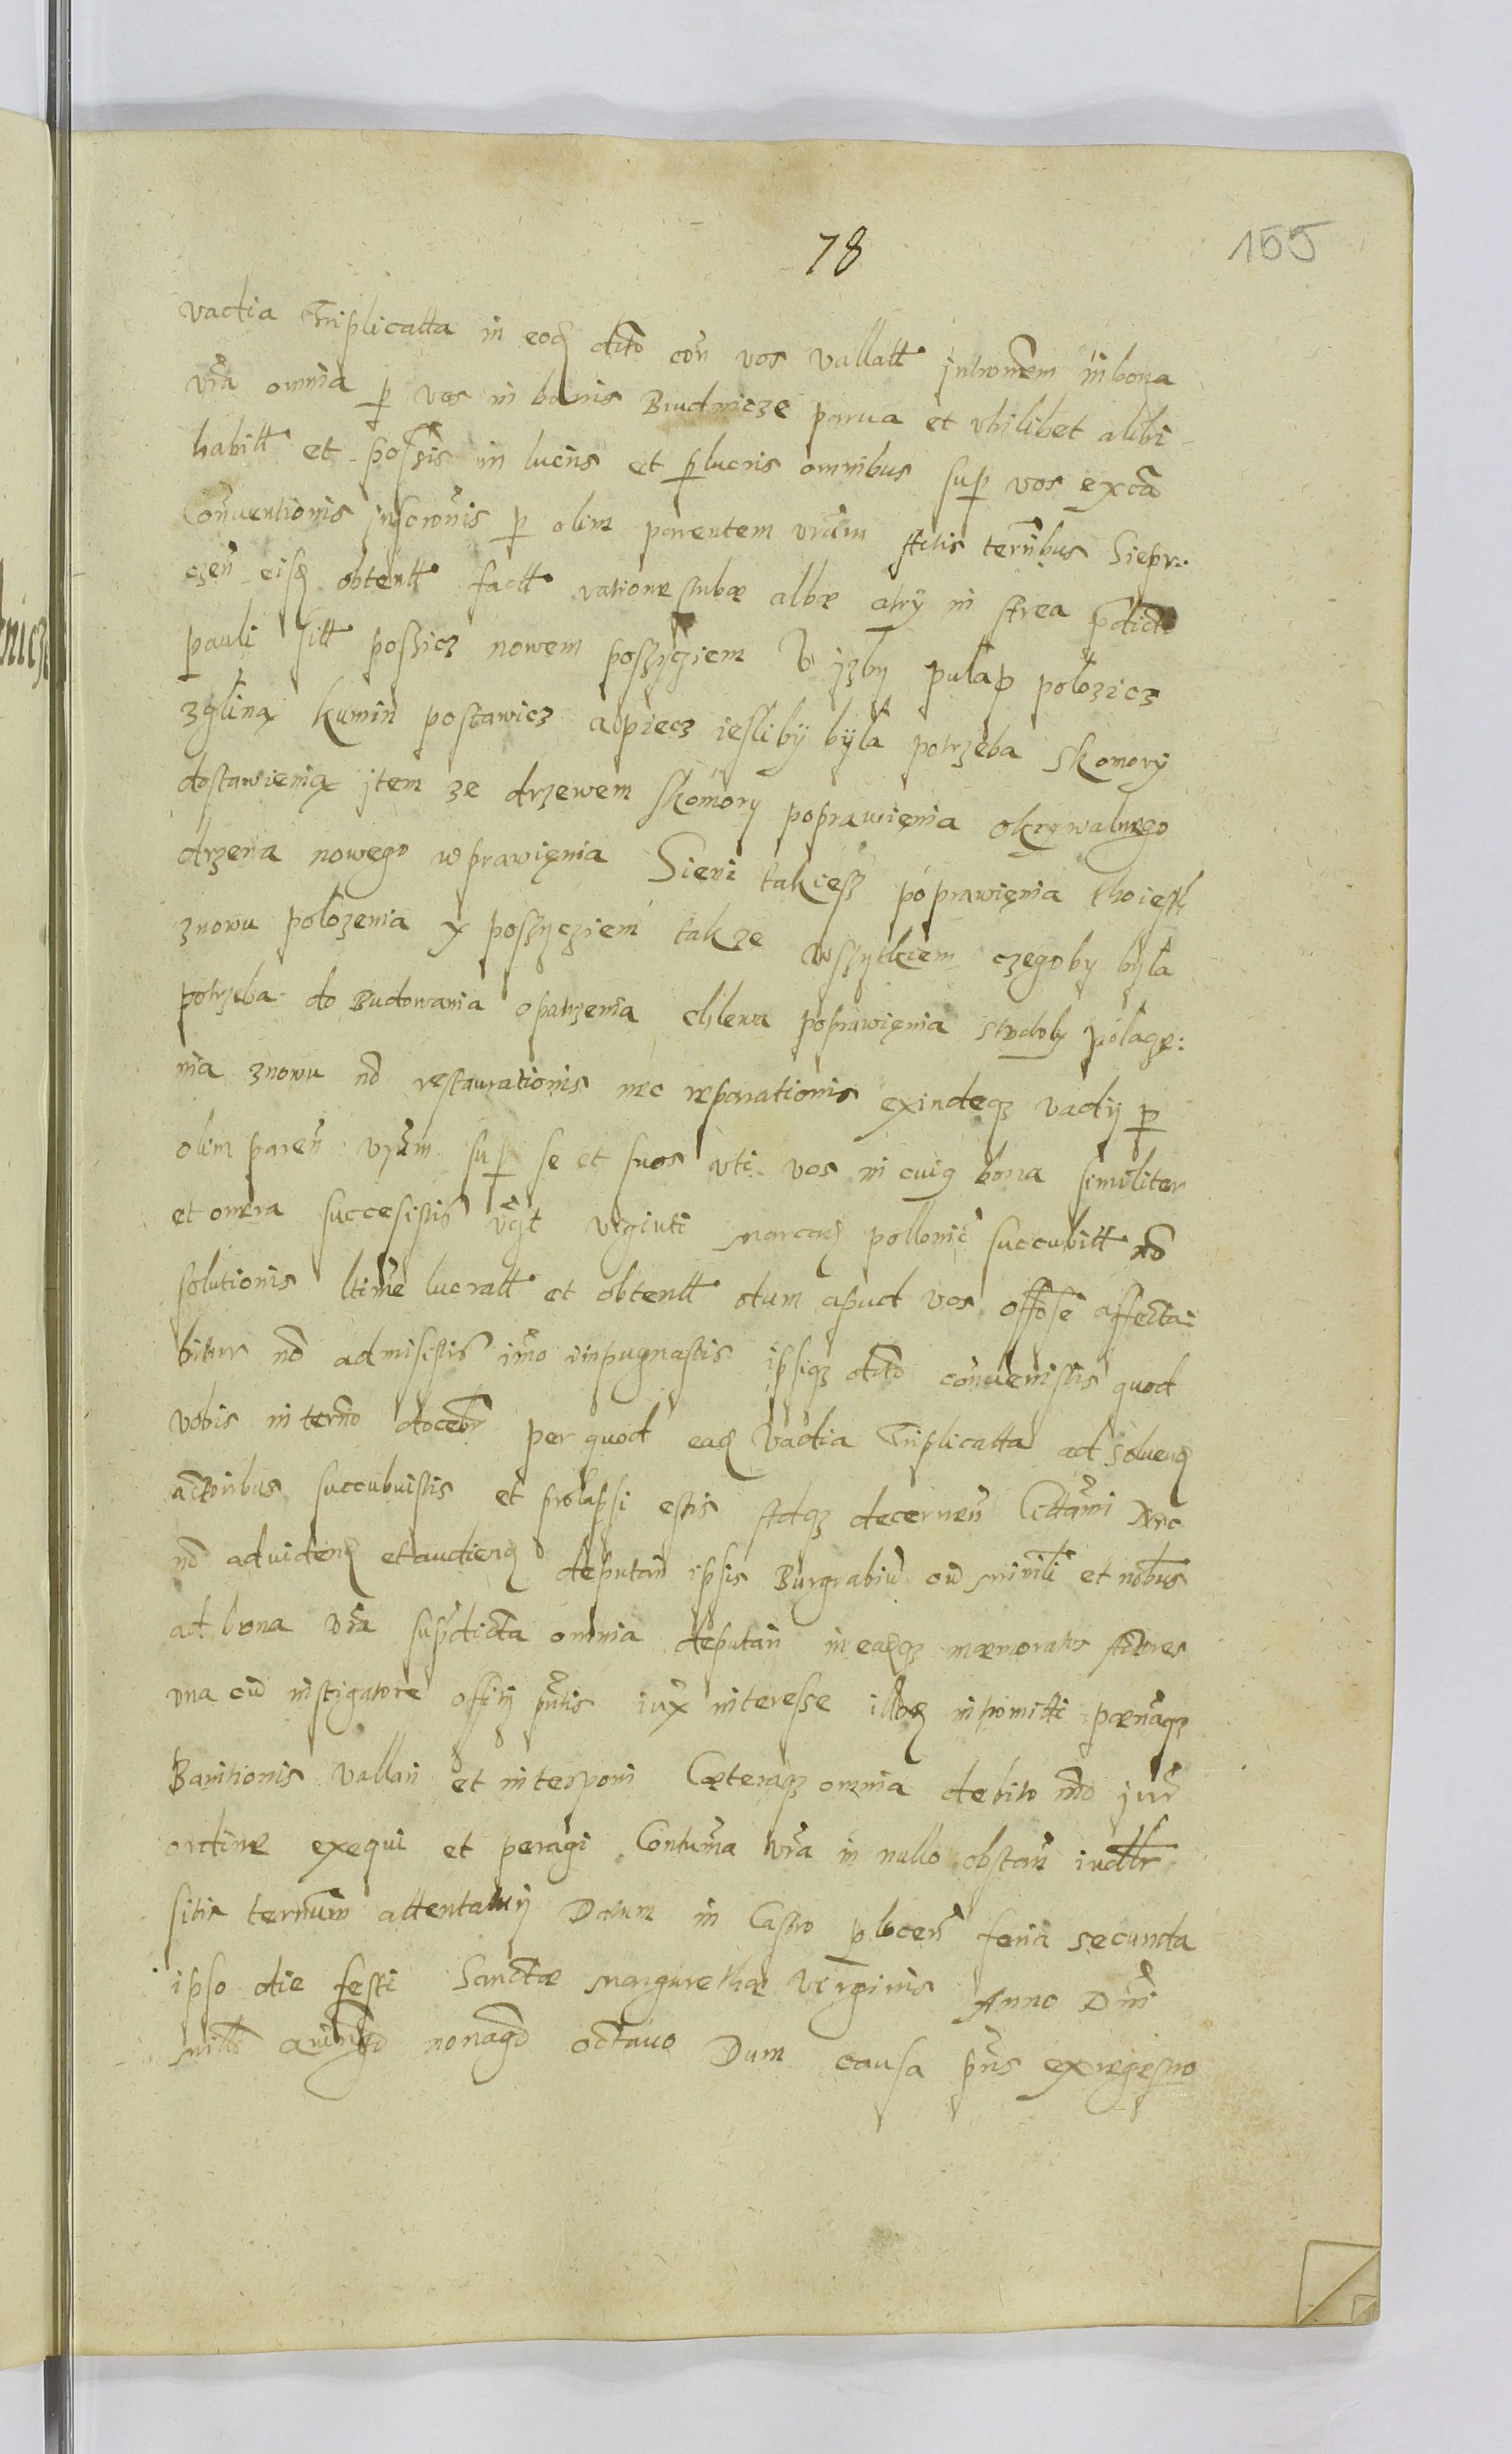 78
155
vadia Triplicatta in eod dcto con vos vallatt jntromem in bona
vra omnia p vos in bonis Brudnicze parua et vbilibet alibi
habitt et possis in lucris et plucris omnibus sup vos ex ca
Conventionis jnscronis p olim parentem vrum Actis terribus Siepr:
czen eisq obtentt factt ratione stubæ albæ atrij in Area pdicti
pauli sitt poszicz nowem poszyciem W jzby pulap polozicz
zglina kumin postawicz a piecz iesliby byla potrzeba skomory
dostawienia jtem ze drzewem skomory poprawięnia okrywalnego
drzewa nowego wprawięnia Sieni takiesz poprawięnia tho iest
znowu polozenia y poszycziem takze wszytkiem czegoby byla
potrzeba do Budowania opatrzenia chlewa poprawięnia stodoly polaze:
nia znowu no restaurationis nec reparationis exindeqz vadij p
olim paren vrum sup se et suos vti vos in cuiq bona similiter
et onera succesistis vgt viginti marcarz pollonic succubitt no
solutionis ltime lucratt et obtentt dum apud vos offose affecta:
bitur no admisistis imo impugnastis ipsiqz dcto convenistis quod
vobis in termo docebr per quod ead vadia Triplicatta ad solvend
actoribus succubuistis et prolapsi estis Adqz decernen Citami
no ad vidend et audiend deputan ipsis Burgrabiu cu minili et nobus
ad bona vra supdicta omnia deputari in eaqz memoratos Actores
vna cu instigatore offitij pntis iux interesse illorz intromitti pænaqz
Banitionis vallari et interponi Cæteraqz omnia debito mo jur
ordine exequi et peragi Contuma vra in nullo obstan iudtr
sitis termum attentaturi Datum in Castro plocen feria secunda
ipso die festi Sanctæ Margarethæ Virginis Anno Dni
Millo quingo nonago octauo Dum causa pns ex regestro